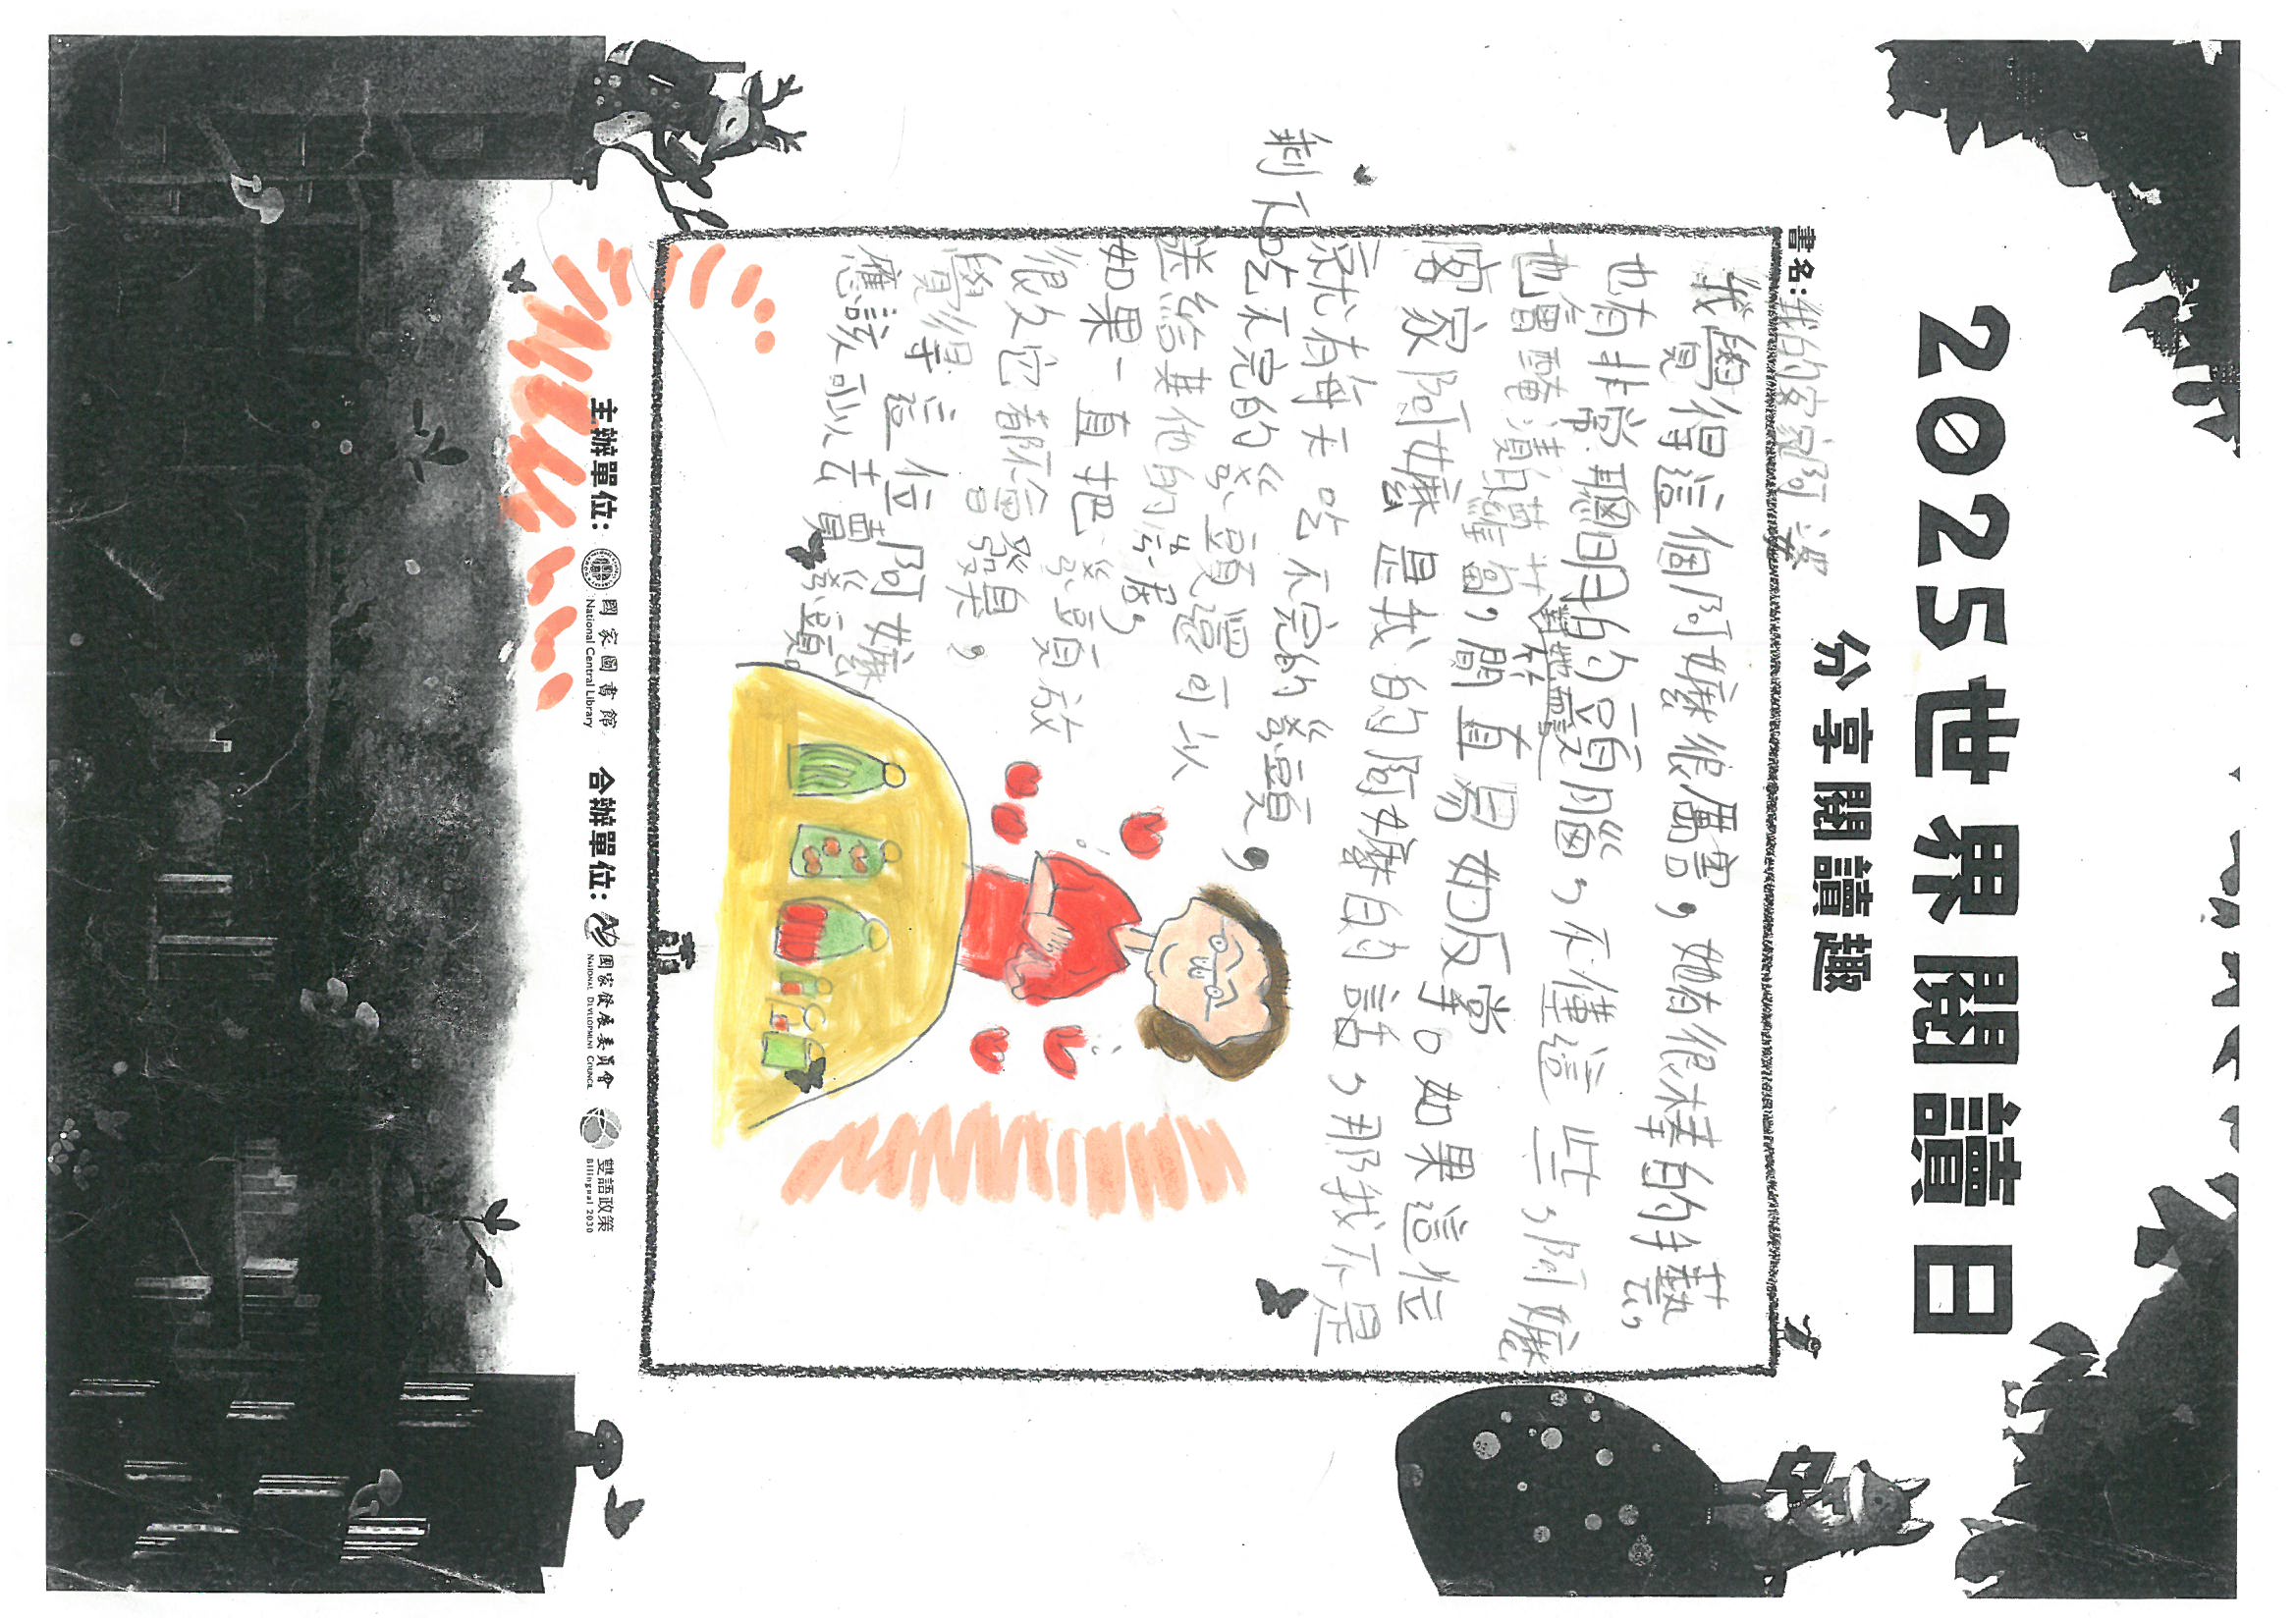 2025世界閱讀日
分享閱讀趣
書名：我的客家阿婆
我覺得這個阿嬤很厲害，她有很棒的手藝，
也有非常聰明的頭腦，不僅這些，阿嬤
也會醃漬蘿蔔，對她而說簡直易如反掌。如果這位
客家阿嬤是我的阿嬤的話，那我不是
就有每天吃不完的頭，
剩下吃不完的頭還可以
送給其他的居，
如果一直把頭放
很久它都不會發臭，
覺得這位阿嬤
應該可以去賣頭。
主辦單位： 國家圖書館 National Central Library 合辦單位： 國家發展委員會 NATIONAL DEVELOPMENT COUNCIL 雙語政策 Bilingual 2030